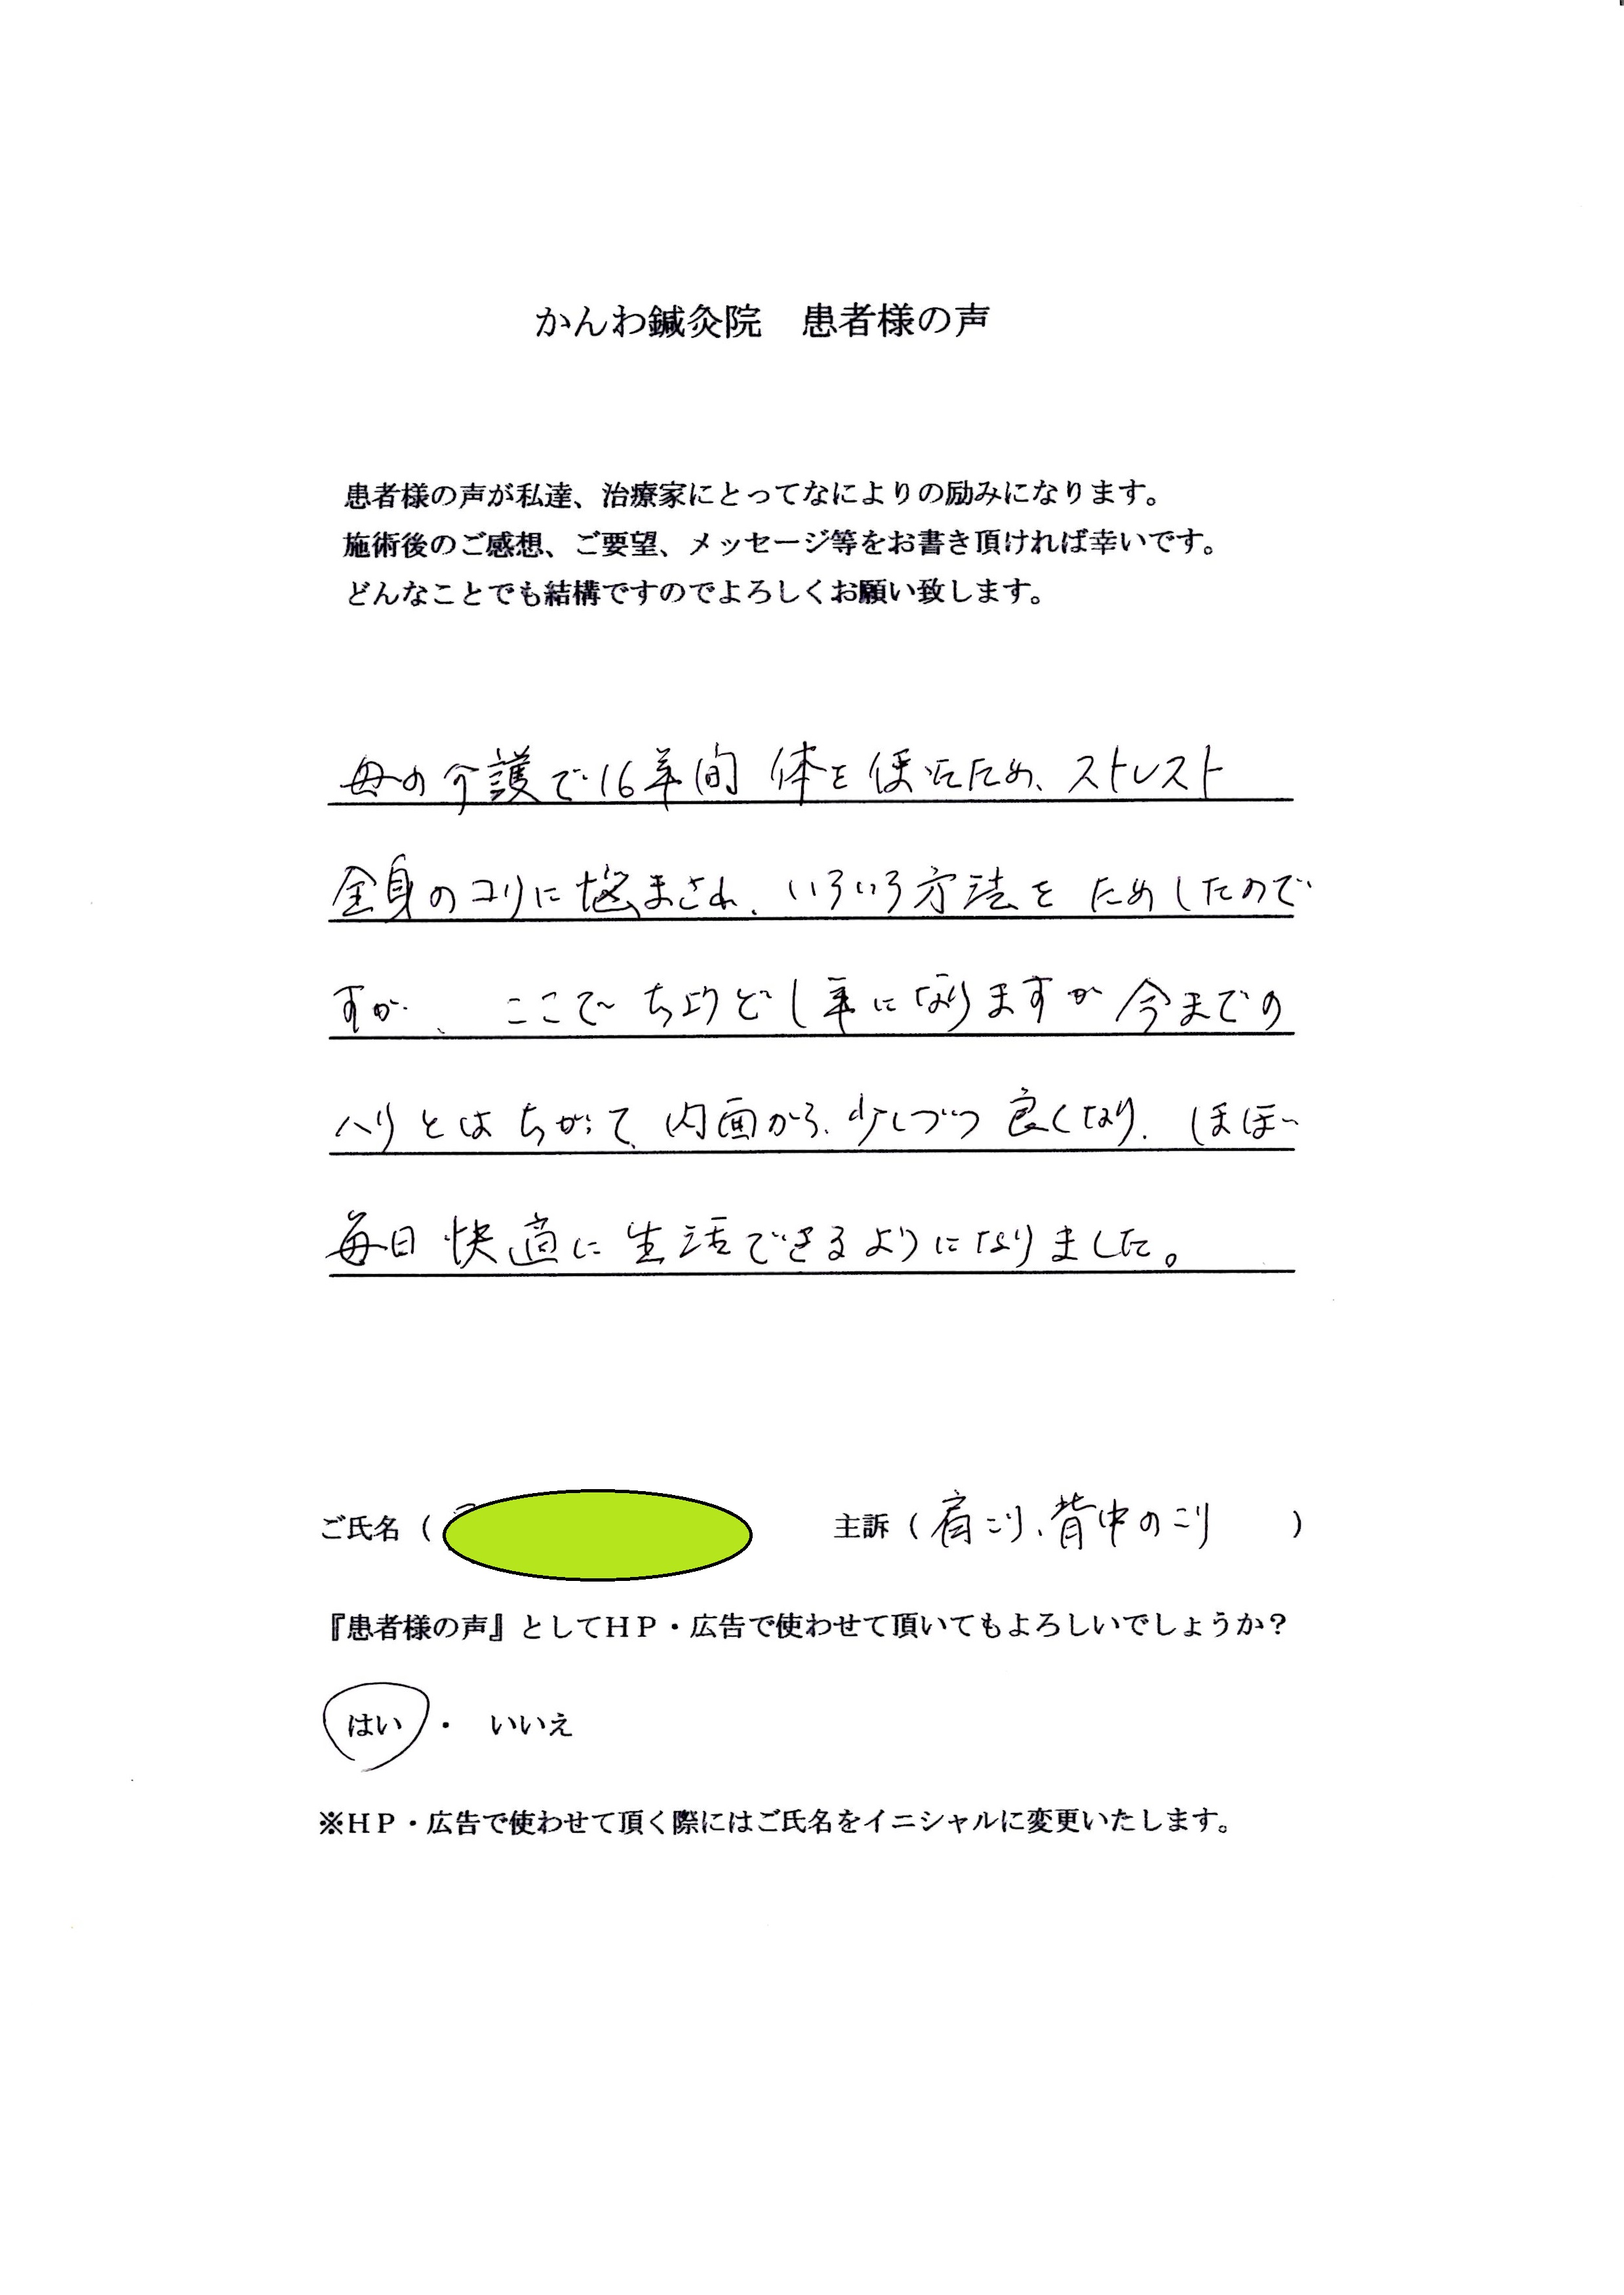 かんわ鍼灸院　患者様の声
患者様の声が私達、治療家にとってなによりの励みになります。
施術後のご感想、ご要望、メッセージ等をお書き頂ければ幸いです。
どんなことでも結構ですのでよろしくお願い致します。
母の介護で16年間 体を使ったため、ストレスト
全身のコリに悩まされ、いろいろ方法をためしたので
すが、ここでちょうど1年になりますが今までの
ハリとはちがって、内面から、少しづつ良くなり、ほぼ
毎日快適に生活できるようになりました。
ご氏名（　主訴（肩こり、背中のこり　）
『患者様の声』としてＨＰ・広告で使わせて頂いてもよろしいでしょうか？
はい・　いいえ
※ＨＰ・広告で使わせて頂く際にはご氏名をイニシャルに変更いたします。